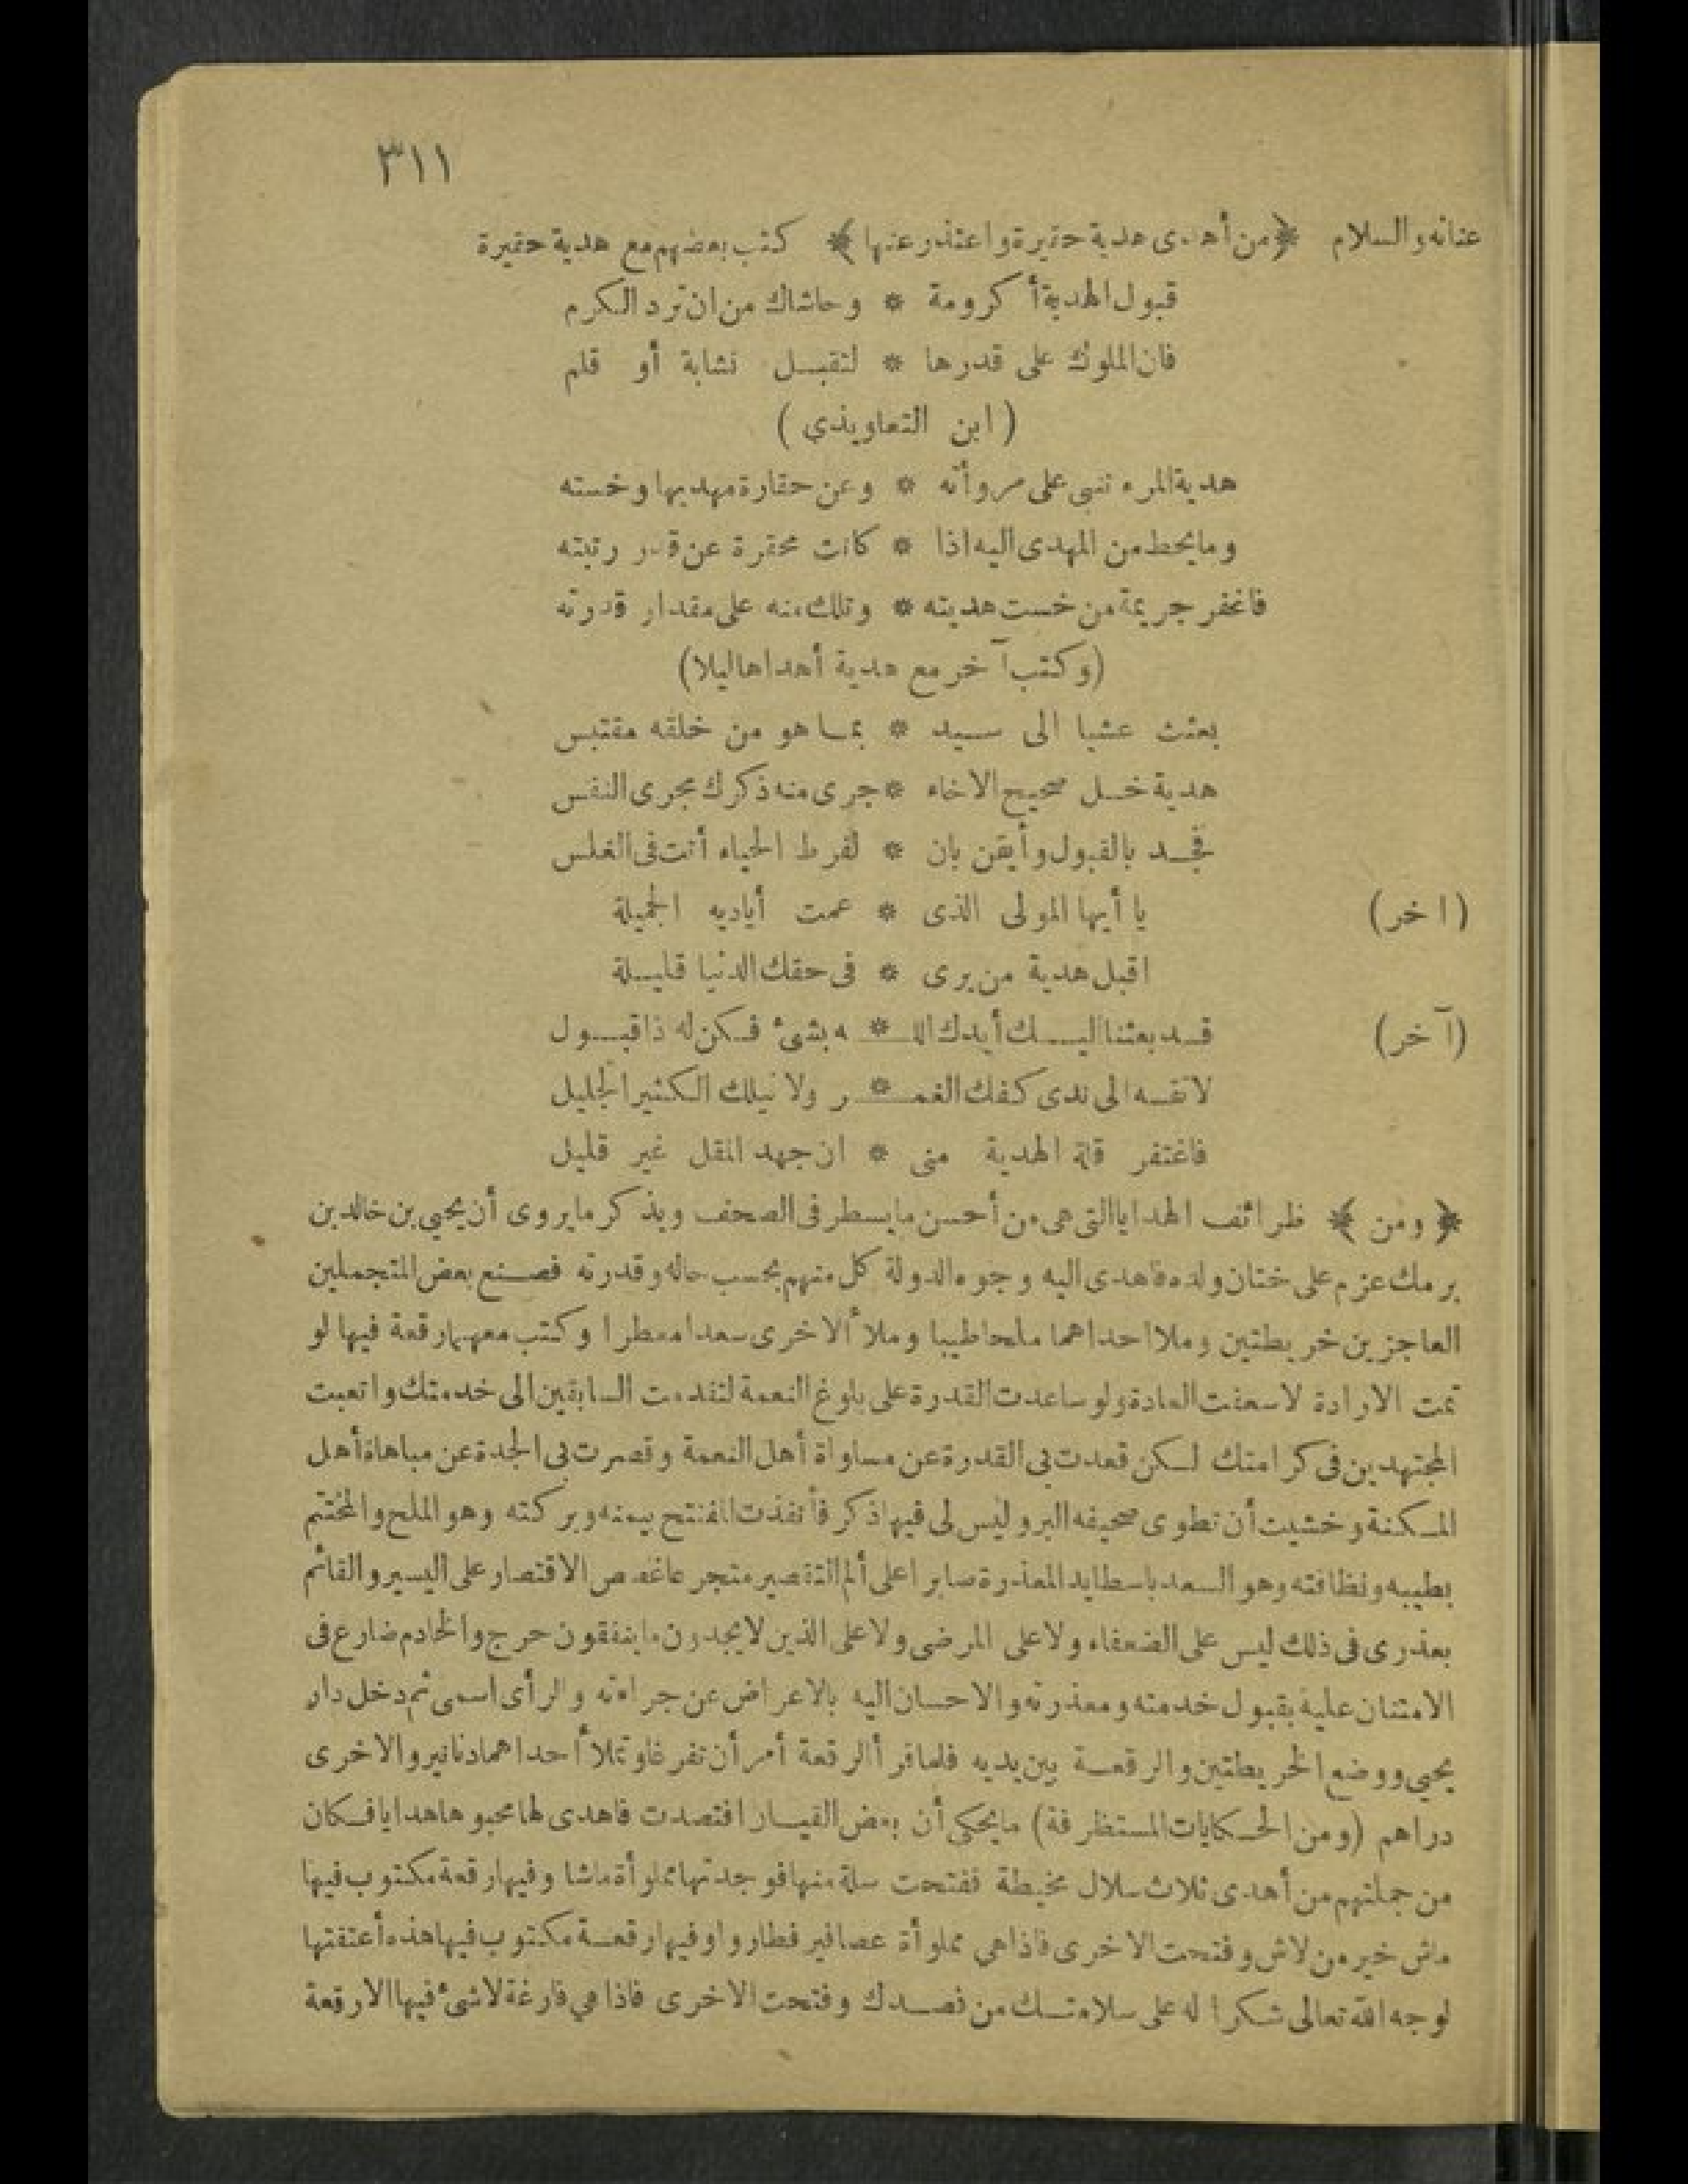 ٣١١
عنانه والسلام ﴿من أهدى هدية حقيرة واعتذر عنها﴾ كتب بعضهم مع هدية حقيرة
قبول الهدية أكرومة * وحاشاك من ان ترد الكرم
فان الملوك على قدرها * لتقبل نشابة أو قلم
(ابن التعاويذي)
هدية المرء تنبى على مروأته * وعن حقارة مهديها وخسته
وما يحط من المهدى اليه اذا * كانت محقرة عن قدر رتبته
فاغفر جريمة من خست هديته * وتلك منه على مقدار قدرته
(وكتب آخر مع هدية أهداها ليلا)
بعثت عشيا الى سيد * بما هو من خلقه مقتبس
هدية خل صحيح الاخاء * جرى منه ذكرك مجرى النفس
فجد بالقبول وأيقن بان * لفرط الحياء أتت فى الغلس
(اخر) يا أيها المولى الذى * عمت أياديه الجميلة
اقبل هدية من يرى * فى حقك الدنيا قليلة
(آخر) قد بعثنا اليك أيدك اللـ * ـه بشئ فكن له ذا قبول
لا تقسه الى ندى كفك الغمـ * ـر ولا نيلك الكثير الجليل
فاغتفر قلة الهدية منى * ان جهد المقل غير قليل
﴿ومن﴾ ظرائف الهدايا التى هى من أحسن ما يسطر فى الصحف ويذكر ما يروى أن يحيى بن خالد بن
برمك عزم على ختان ولده فاهدى اليه وجوه الدولة كل منهم بحسب حاله وقدرته فصنع بعض المتجملين
العاجزين خريطتين وملا احداهما ملحا طيبا وملأ الاخرى سعدا معطرا وكتب معهما رقعة فيها لو
تمت الارادة لاسعفت العادة ولو ساعدت القدرة على بلوغ النعمة لتقدمت السابقين الى خدمتك واتعبت
المجتهدين فى كرامتك لكن قعدت بى القدرة عن مساواة أهل النعمة وقصرت بى الجدة عن مباهاة أهل
المكنة وخشيت أن تطوى صحيفه البر وليس لى فيها ذكر فأنفذت المفتتح بيمنه وبركته وهو الملح والمختتم
بطيبه ونظافته وهو السعد باسطا يد المعذرة صابرا على ألم التقصير متجرعا غصص الاقتصار على اليسير والقائم
بعذرى فى ذلك ليس على الضعفاء ولا على المرضى ولا على الذين لا يجدون ما ينفقون حرج والخادم ضارع فى
الامتنان عليه بقبول خدمته ومعذرته والاحسان اليه بالاعراض عن جراءته والرأى اسمى ثم دخل دار
يحيى ووضع الخريطتين والرقعة بين يديه فلما قرأ الرقعة أمر أن تفرغا وتملأ أحداهما دنانير والاخرى
دراهم (ومن الحكايات المستظرفة) ما يحكى أن بعض القيان افتصدت فاهدى لها محبوها هدايا فكان
من جملتهم من أهدى ثلاث سلال مخيطة ففتحت سلة منها فوجدتها مملوأة ماشا وفيها رقعة مكتوب فيها
ماش خير من لاش وفتحت الاخرى فاذا هي مملوأة عصافير فطاروا وفيها رقعة مكتوب فيها هذه أعتقتها
لوجه الله تعالى شكرا له على سلامتك من فصدك وفتحت الاخرى فاذا هي فارغة لا شئ فيها الا رقعة